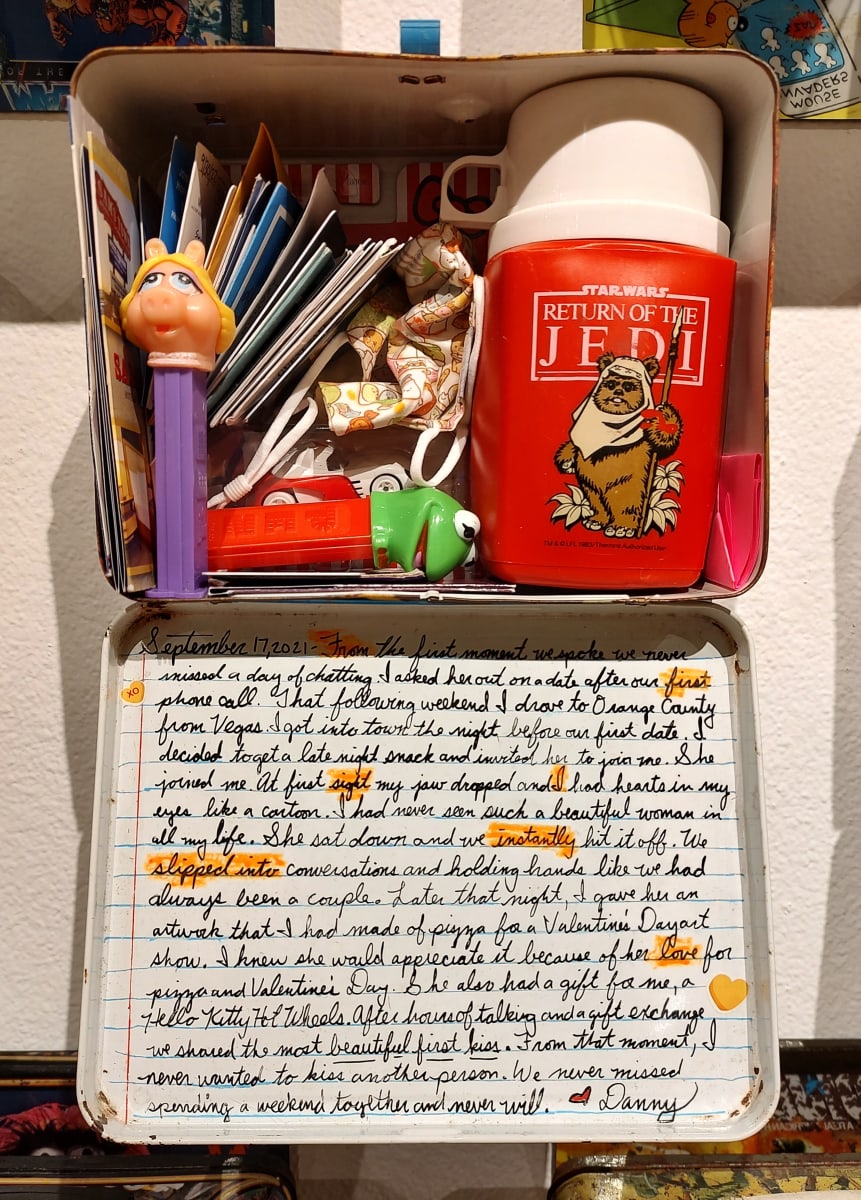 MOUSE
INVADERS
STAR WARS
RETURN OF THE
JEDI
September 17, 2021 - From the first moment we spoke we never
missed a day of chatting. I asked her out on a date after our first
phone call. That following weekend I drove to Orange County
from Vegas. I got into town the night before our first date. I
decided to get a late night snack and invited her to join me. She
joined me. At first sight my jaw dropped and I had hearts in my
eyes like a cartoon. I had never seen such a beautiful woman in
all my life. She sat down and we instantly hit it off. We
slipped into conversations and holding hands like we had
always been a couple. Later that night, I gave her an
artwork that I had made of pizza for a Valentine's Day art
show. I knew she would appreciate it because of her love for
pizza and Valentine's Day. She also had a gift for me, a
Hello Kitty Hot Wheels. After hours of talking and a gift exchange
we shared the most beautiful first kiss. From that moment, I
never wanted to kiss another person. We never missed
spending a weekend together and never will. Danny
XO